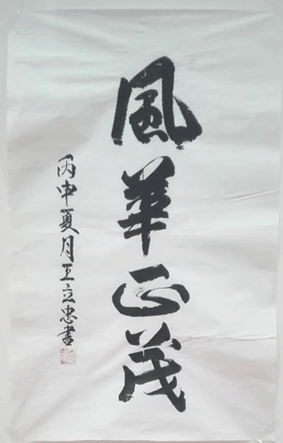 風華正茂
丙申夏月王立忠書